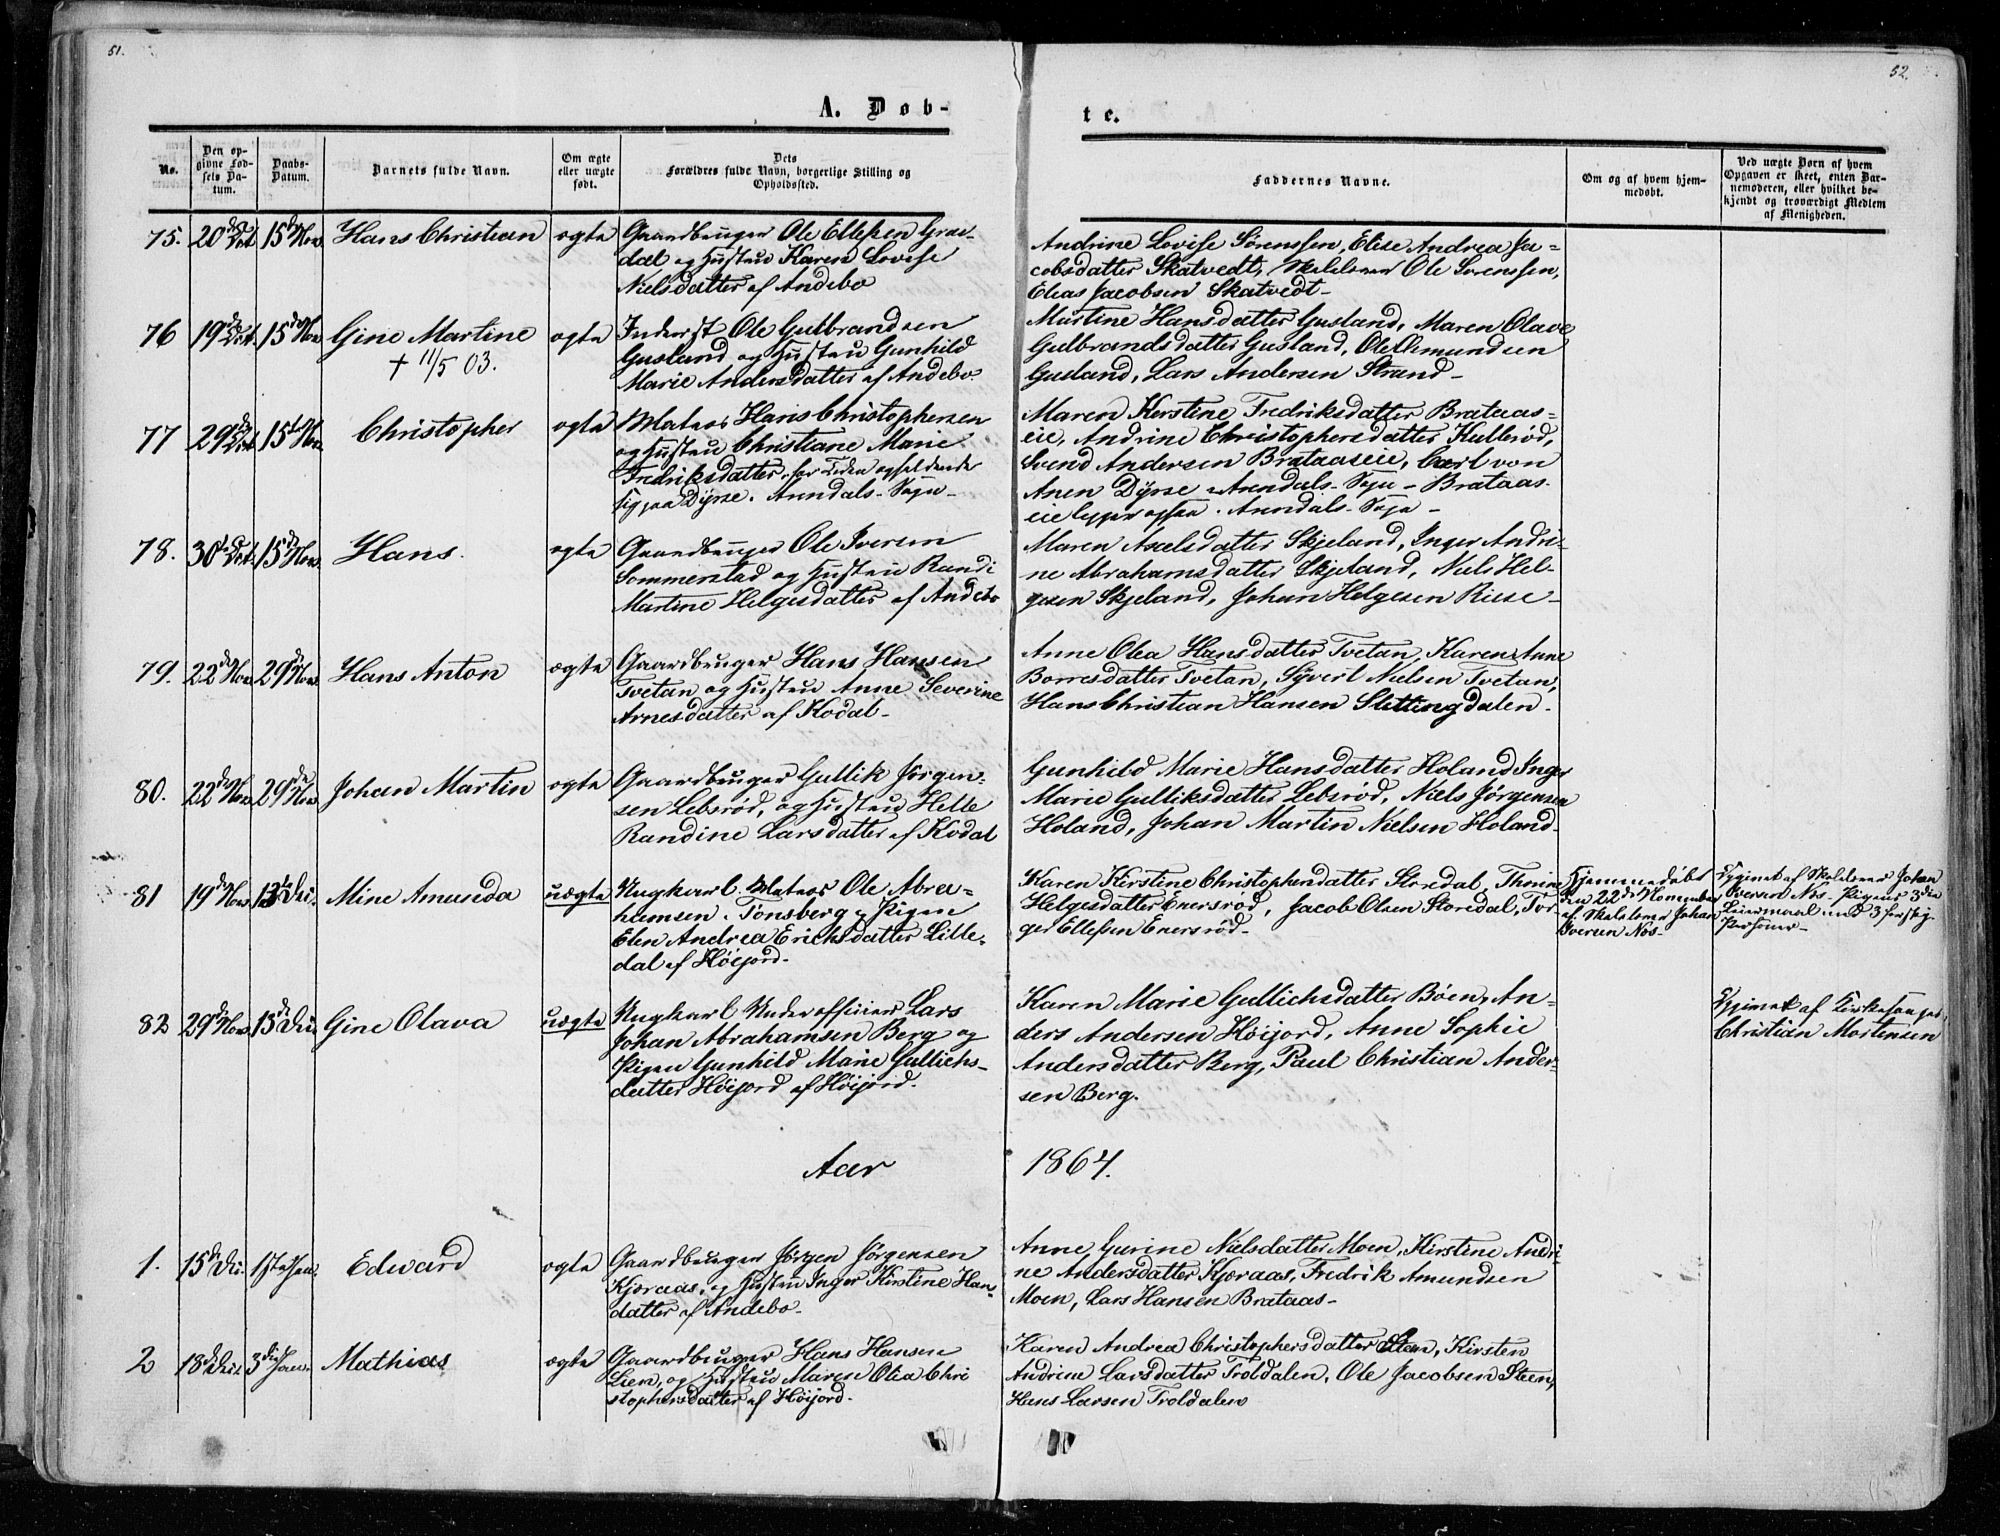 51.
52.
A. Døb-
te.
No.
Den opgivne Fødsels Datum.
Daabs-Datum.
Barnets fulde Navn.
Om ægte eller uægte født.
Dets Forældres fulde Navn, borgerlige Stilling og Opholdssted.
Faddernes Navne.
Om og af hvem hjemmedøbt.
Ved uægte Børn af hvem Opgaven er skeet, enten Barnemoderen, eller hvilket bekjendt og troværdigt Medlem af Menigheden.
75. 20de Oct. 15de Nov. Hans Christian ægte
Gaardbruger Ole Ellefsen Gravdal og Hustru Karen Lovise
Nielsdatter af Andebo
Andrine Lovise Sørenssen, Elise Andrea Ja-
cobsdatter Skatvedt, Skolelærer Ole Sørenssen,
Elias Jacobsen Skatvedt-
76 19de Oct. 15de Nov. Gine Martine ægte
+ 11/5 03.
Inderst Ole Gulbrandsen
Gusland og Hustru Gunhild
Marie Andersdatter af Andebo.
Martine Hansdatter Gusland, Maren Olave
Gulbrandsdatter Gusland, Ole Omundsen
Gusland, Lars Andersen Strand-
77 29de Oct. 15de Nov. Christopher ægte
Matros Hans Christophersen
og Hustru Christiane Marie
Fredriksdatter, for Tiden opholdende
sig paa Dyrsø. Arendals-Sogn-
Maren Kerstine Fredriksdatter Brataas-
eie, Andrine Christophersdatter Kullerød,
Svend Andersen Brataaseie, Carl von
Anen Dyrsø Arendals-Sogn- Brataas-
eie Arendals-Sogn-
78. 30te Oct. 15de Nov. Hans. ægte
Gaardbruger Ole Iversen
Sommerstad og Hustru Randi
Martine Helgesdatter af Andebo
Maren Axelsdatter Skjeland, Inger Andri-
ne Abrahamsdatter Skjeland, Niels Hel-
gesen Skjeland, Johan Helgesen Riise-
79. 22de Nov. 29de Nov. Hans Anton ægte
Gaardbruger Hans Hansen
Tvetan og Hustru Anne Severine
Arnesdatter af Kodal-
Anne Olea Hansdatter Tvetan, Karen Anne
Borresdatter Tvetan, Syvert Nielsen Tvetan,
Hans Christian Hansen Slettingdalen.
80. 22de Nov. 29de Nov. Johan Martin ægte
Gaardbruger Gullik Jørgen-
sen Lebsrød, og Hustru Helle
Randine Larsdatter af Kodal
Gunhild Marie Hansdatter Holand, Inger
Marie Gulliksdatter Lebsrød, Niels Jørgensen
Holand, Johan Martin Nielsen Holand-
81 19de Nov. 13de Dec. Mine Amunda uægte
Ungkarl Matros Ole Abra-
hamsen Tønsberg og Pigen
Elen Andrea Erichsdatter Lille-
dal af Høijord.
Karen Kirstine Christophersdatter Storedal, Thorine
Helgesdatter Enersrød, Jacob Olsen Storedal, Tor-
ger Ellefsen Enersrød-
Hjemmedøbt
den 22de November
af Skolelærer Johan
Iversen Nos-
Opgivet af Skolelærer Johan
Iversen Nos- Pigens 3die
Leiermaal med 3 forskj.
Personer-
82 29de Nov. 13de Dec. Gine Olava uægte
Ungkarl Underofficer Lars
Johan Abrahamsen Berg og
Pigen Gunhild Marie Gullichs-
datter Høijord af Høijord.
Karen Marie Gullichsdatter Bøen, An-
ders Andersen Høijord, Anne Sophie
Andersdatter Berg, Paul Christian Ander-
sen Berg.
Opgivet af Kirkesanger
Christian Mortensen
Aar 1864.
1. 15de Dec. 1ste Jan. Edward ægte
Gaardbruger Jørgen Jørgensen
Kjøraas, og Hustru Inger Kirstine Han-
datter af Andebo-
Anne Gurine Nielsdatter Moen, Kirstine Andri-
ne Andersdatter Kjøraas, Fredrik Amundsen
Moen, Lars Hansen Brataas-
2 18de Dec. 3die Jan. Mathias ægte
Gaardbruger Hans Hansen
Lien, og Hustru Maren Olea Chri
stophersdatter af Høijord.
Karen Andrea Christophersdatter Steen, Kirsten
Andrine Larsdatter Troldalen, Ole Jacobsen Steen,
Hans Larsen Troldalen